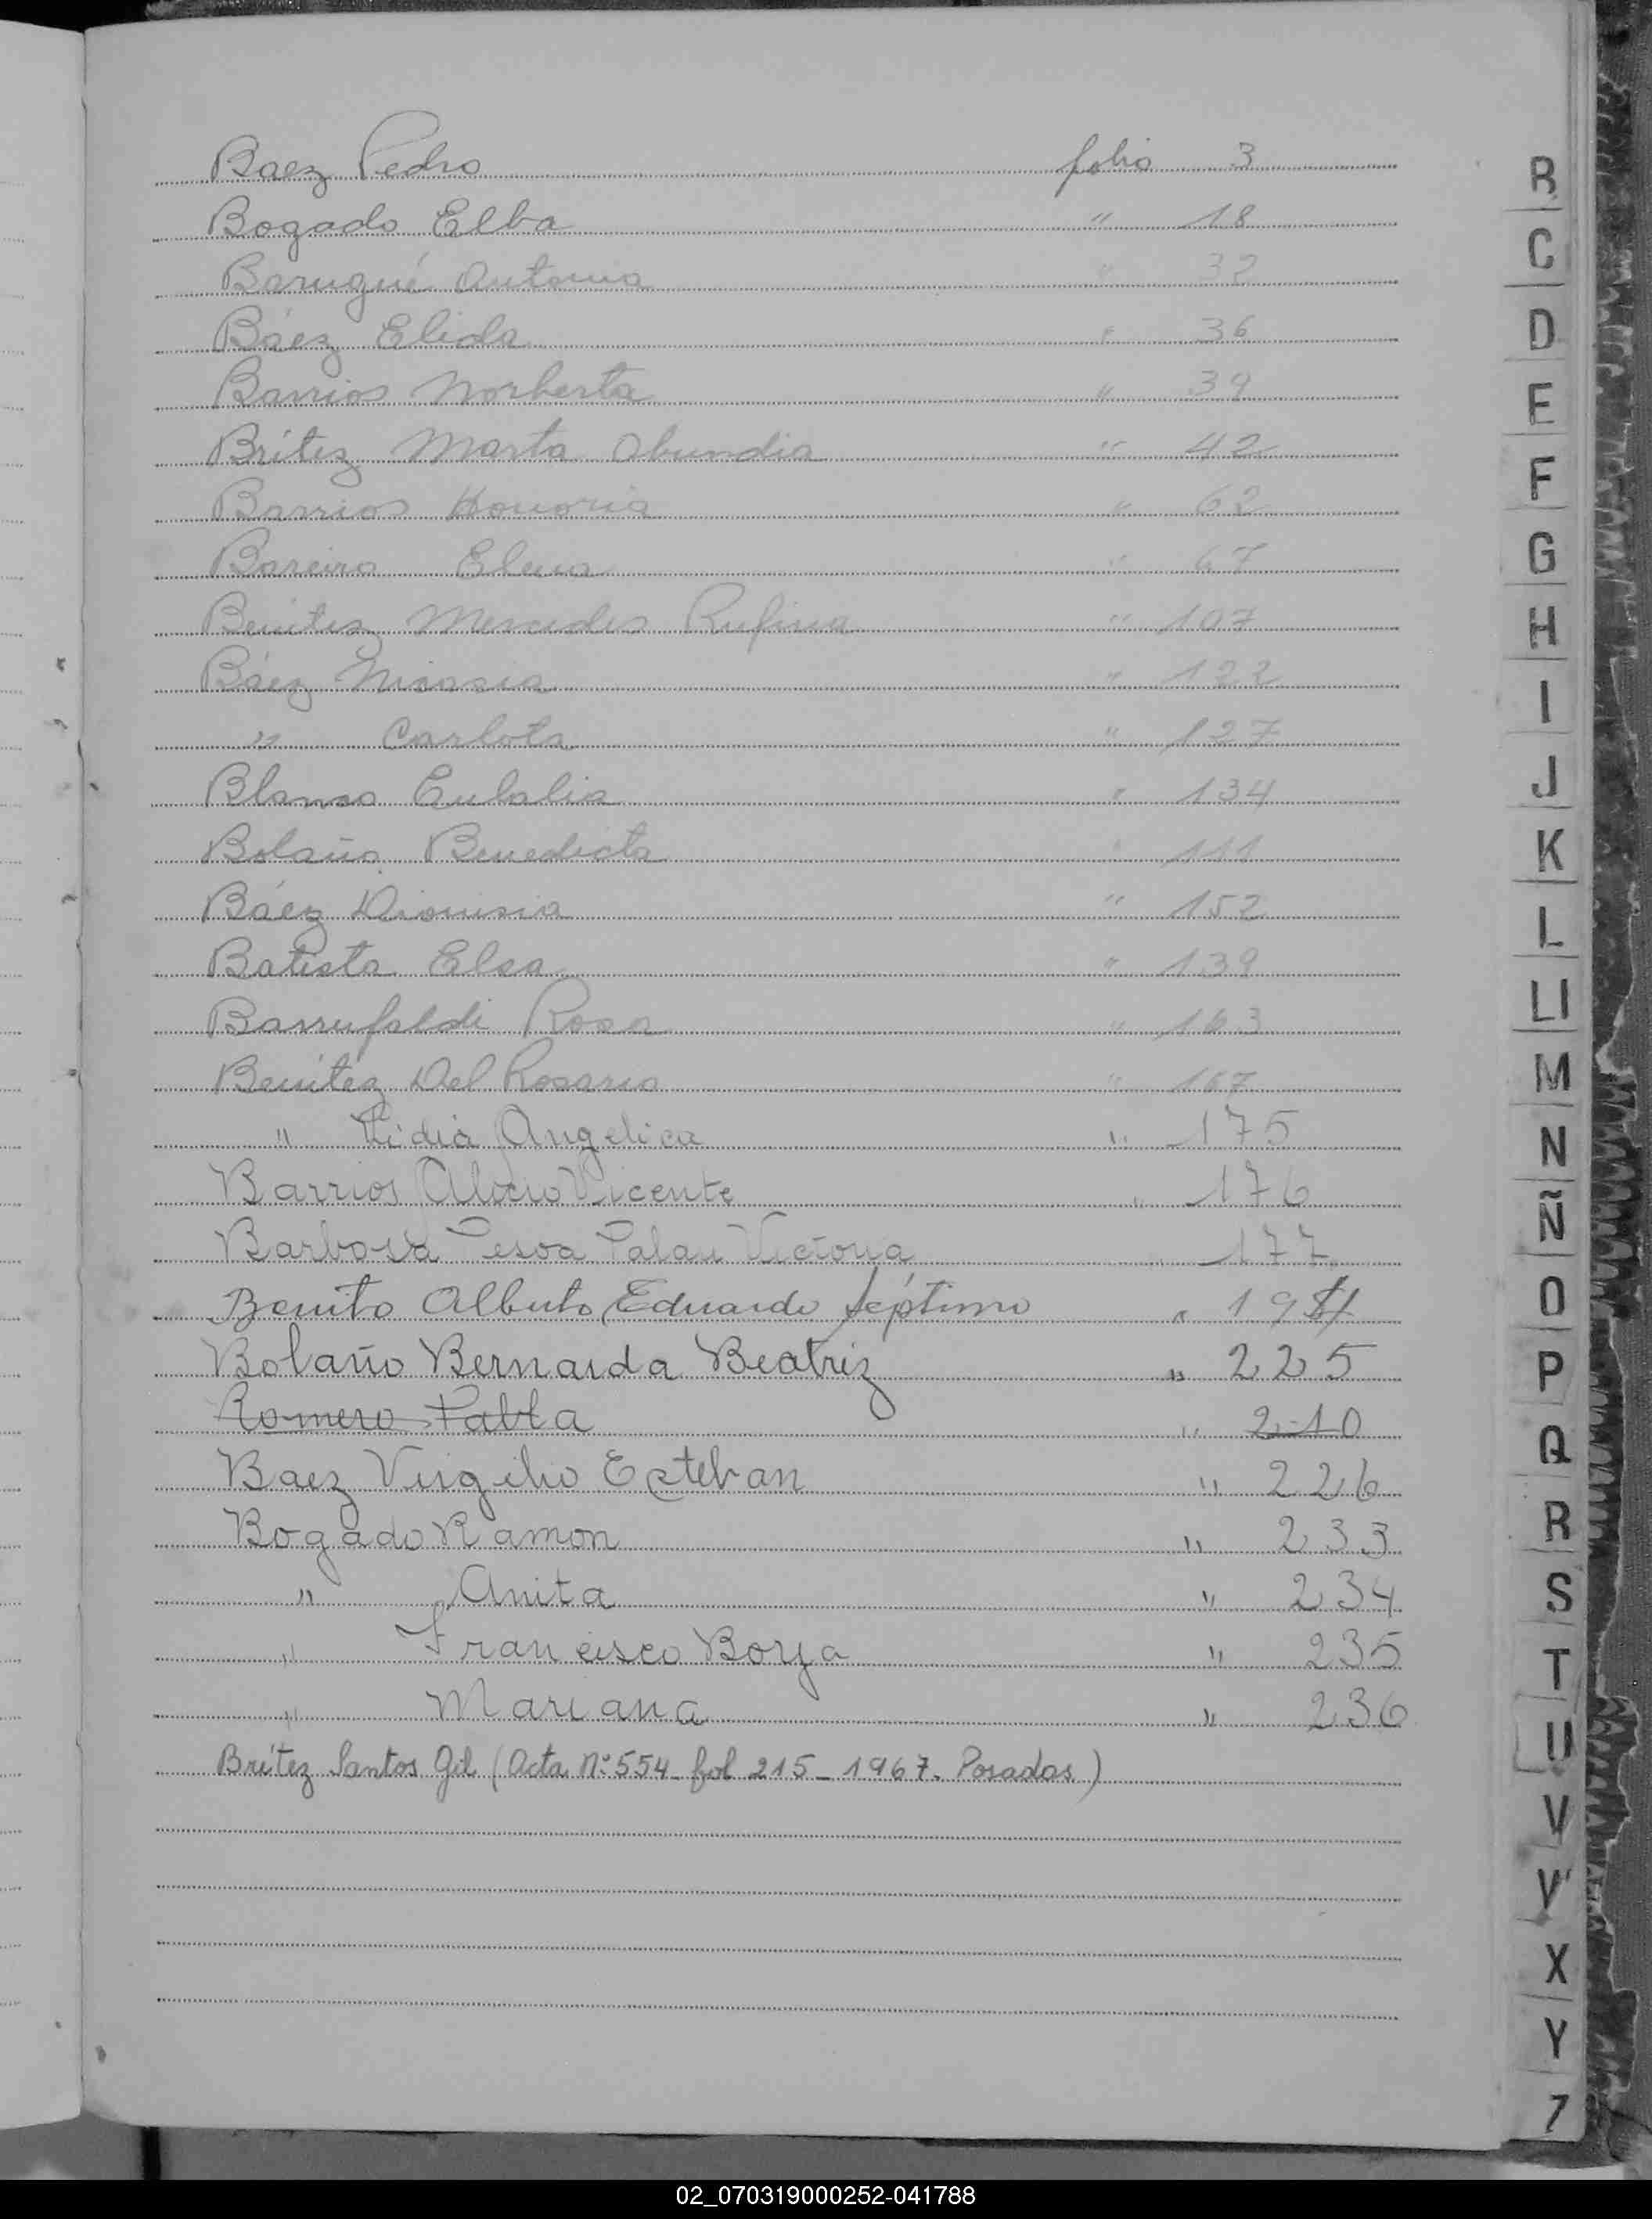 Baez Pedro folio 3
Bogado Elba " 18
Barugué Antonia " 32
Báez Elida " 36
Barrios Norberta " 39
Brítez Marta Abundia " 42
Barrios Honoria " 62
Bareiro Elena " 67
Benítez Mercedes Rufina " 107
Báez Nicasia " 122
" Carlota " 127
Blanco Eulalia " 134
Bolaño Benedicta " 111
Báez Dionisia " 152
Batista Elsa " 139
Barrufaldi Rosa " 163
Benítez Del Rosario " 167
" Lidia Angelica " 175
Barrios Vicente " 176
Barbosa Pesoa Palau Victoria " 177
Benito Alberto Eduardo Séptimo "
Bolaño Bernarda Beatriz " 225
Romero Pabla " 210
Baez Virgilio Esteban " 226
Bogado Ramon " 233
" Anita " 234
" Francisco Borja " 235
" Mariana " 236
Brítez Santos Gil (Acta Nº 554 - fol 215 - 1967. Posadas)
B
C
D
E
F
G
H
I
J
K
L
Ll
M
N
Ñ
O
P
Q
R
S
T
U
V
X
Y
Z
02_070319000252-041788